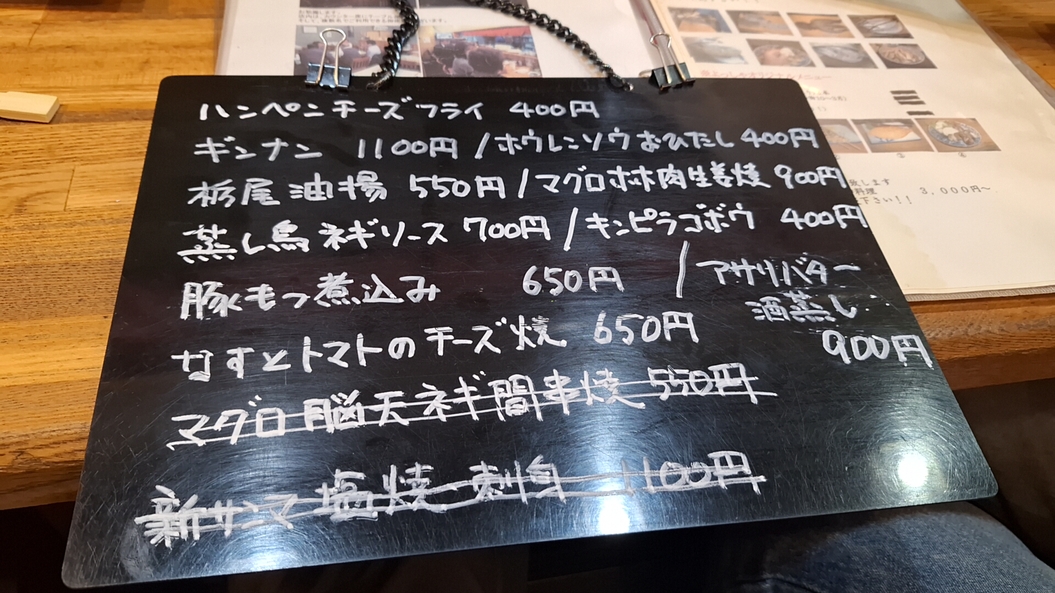 ハンペンチーズフライ 400円
ギンナン 1100円 / ホウレンソウおひたし 400円
栃尾油揚 550円 / マグロホホ肉生姜焼 900円
蒸し鳥ネギソース 700円 / キンピラゴボウ 400円
豚もつ煮込み 650円 / アサリバター
酒蒸し
900円
なすとトマトのチーズ焼 650円
マグロ脳天ネギ間串焼 550円
新サンマ 塩焼・刺身 1100円
3,000円〜